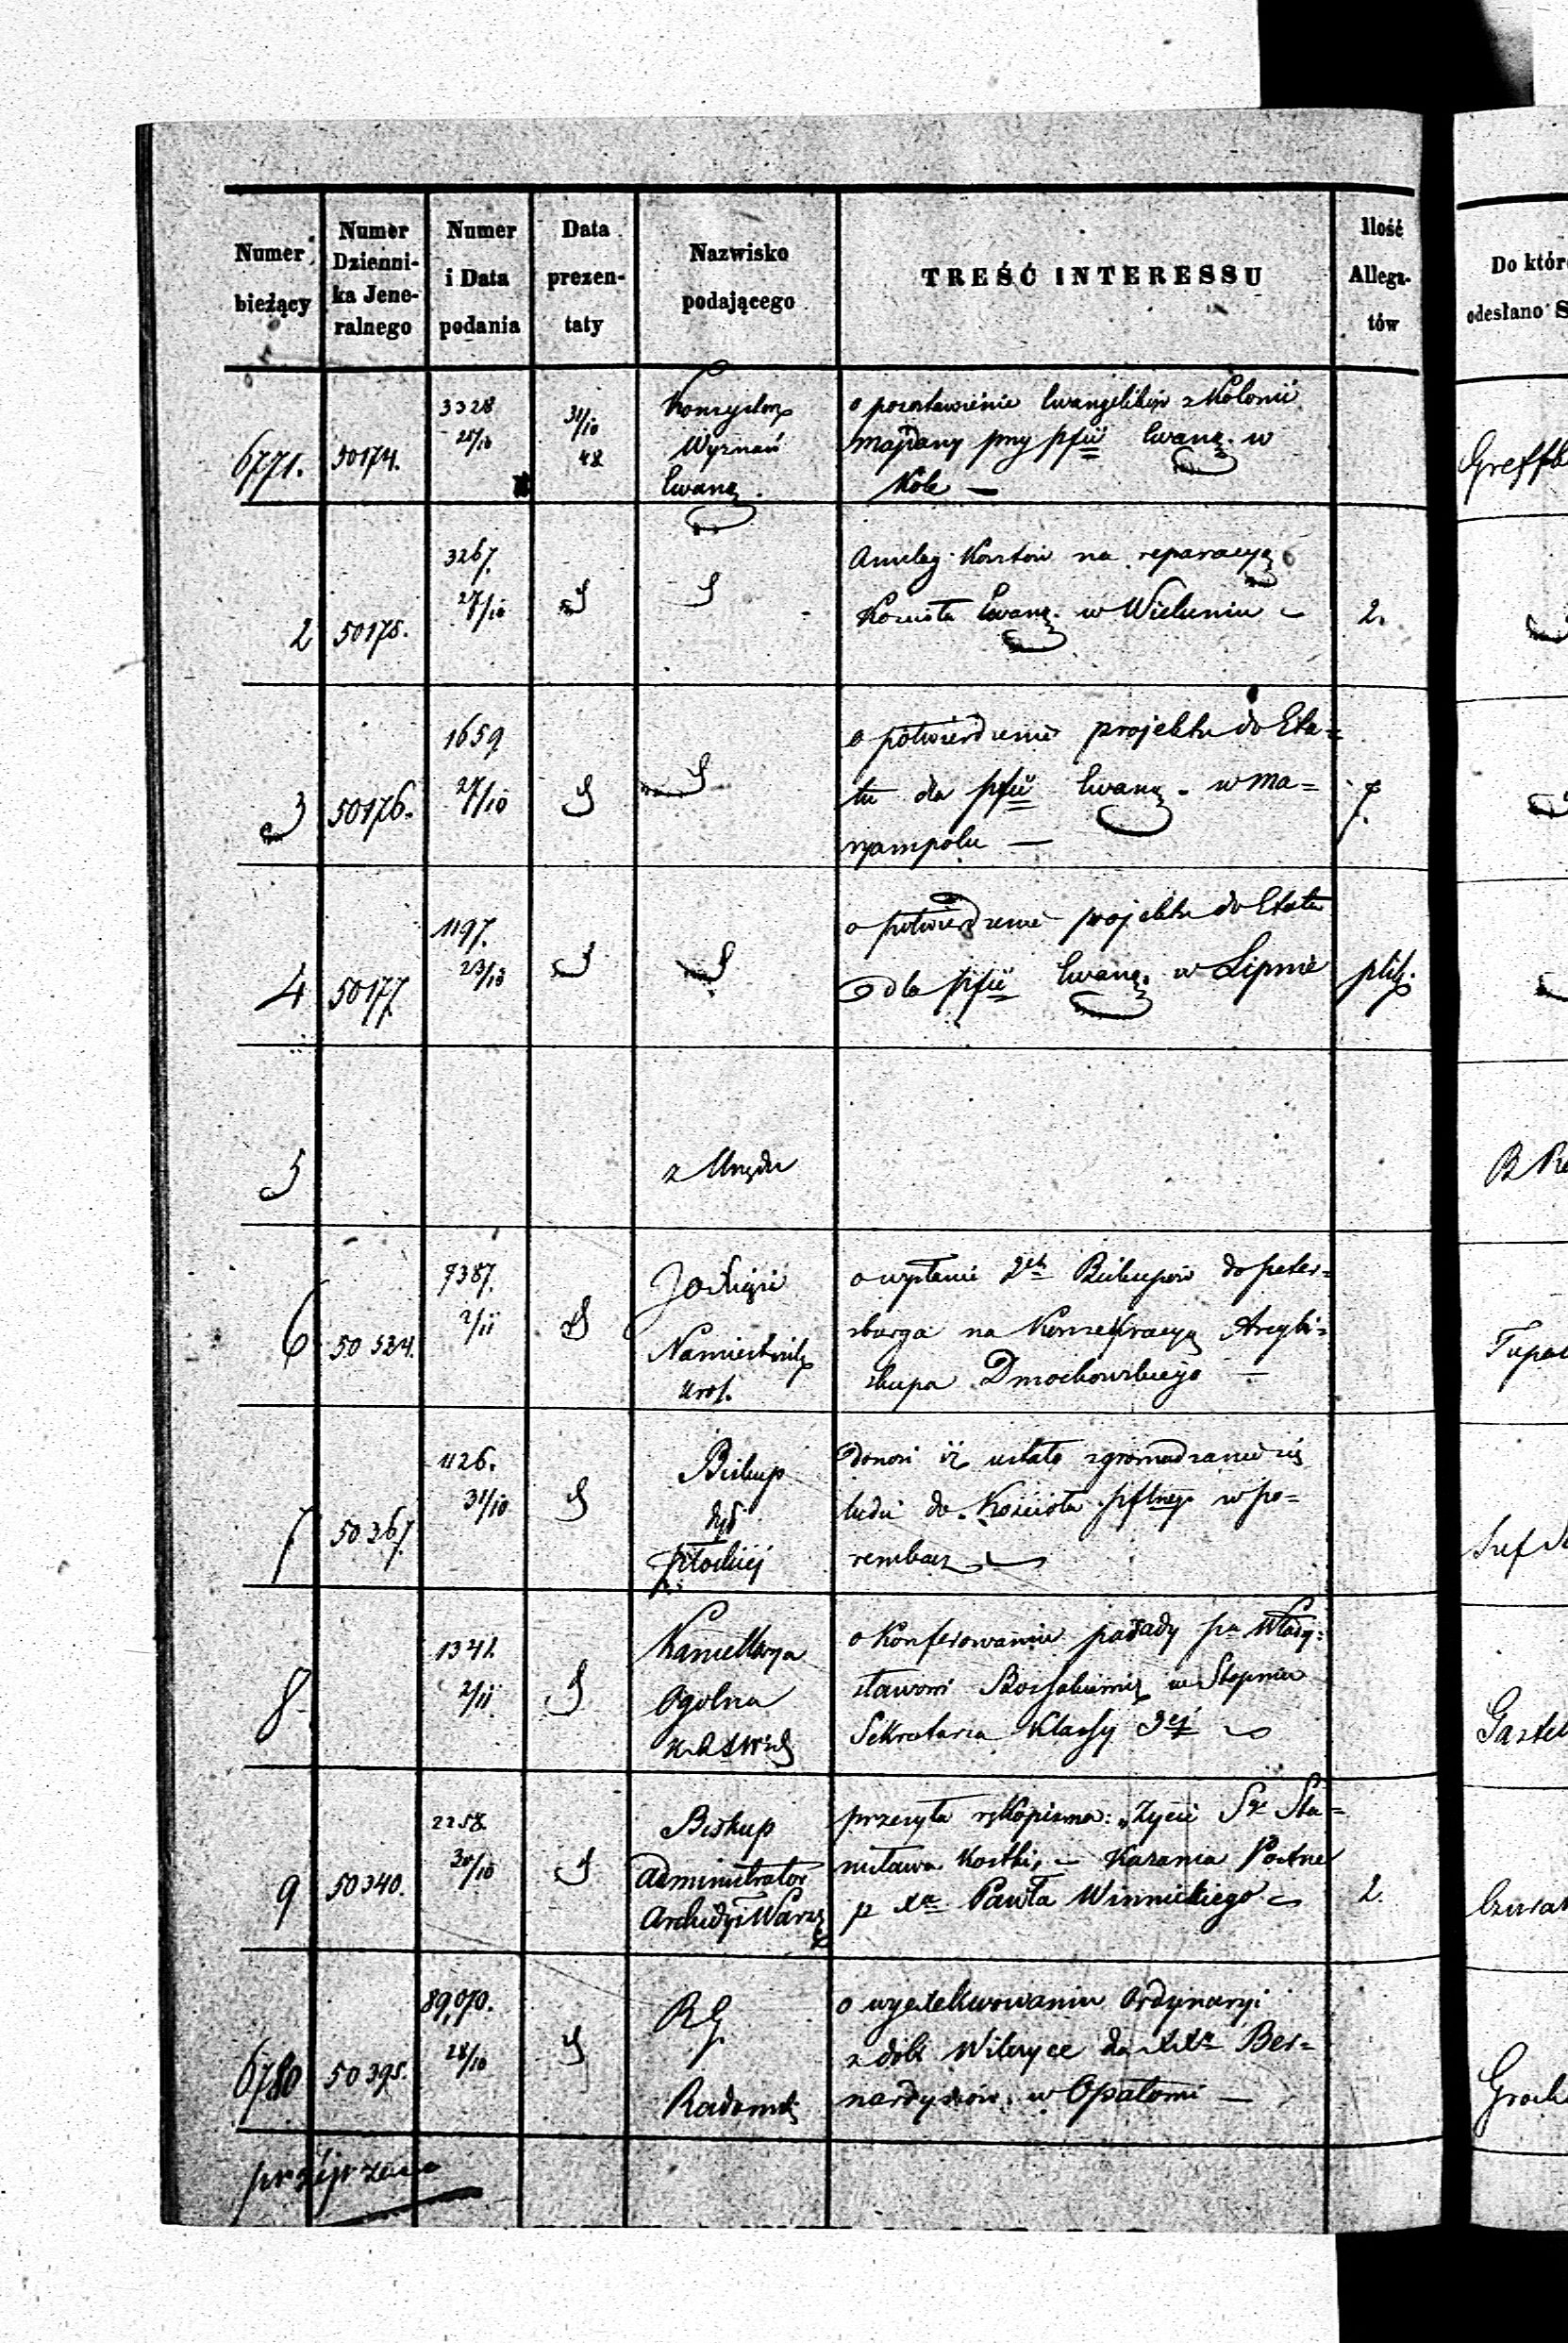 Numer bieżący | Numer Dzienni-ka Jene-ralnego | Numer i Data podania | Data prezen-taty | Nazwisko podającego | TREŚĆ INTERESSU | Ilość Allega-tów | Do któr
odesłano S
6771. | 50174. | 3328 28/10 | 31/10 48 | Konsystorz Wyznań Ewang. | o pozostawienie Ewangelików z Kolonii
Majdany przy pfii Ewang. w
Kole —
2 | 50175. | 3267. 27/10 | Anszlag Kosztów na reparacyą
Kościoła Ewang. w Wieluniu — | 2.
3 | 50176. | 1659 27/10 | o potwierdzenie projektu do Eta=
tu dla pfii Ewang. w Ma=
ryampolu — | 7.
4 | 50177. | 1197. 23/10 | o potwierdzenie projektu do Etatu
dla pfii Ewang. w Lipnie | plik.
5 | z Urzędu
6 | 50524. | 7387. 2/11 | JO Xiąże
Namiestnik
Król. | o wysłanie 2ch Biskupów do Peters=
burga na Konsekracyą Arcybi=
skupa Dmochowskiego —
7 | 50367. | 1126. 31/10 | Biskup
dyś
Płockiej | Donosi iż ustało zgromadzanie się
ludu do Kościoła pflnego w Po=
rembach
8 | 1341. 2/11 | Kancellarya
Ogólna | o Konferowaniu posady pu Włady=
sławowi w Stopniu
Sekretarza Klassy 3ej
9 | 50340. | 2258. 30/10 | Biskup
Administrator
Archidyi Warsz | przesyła rękopisma: „Życie Sgo Sta=
nisława Kostki, — Kazania Postne
p Xa Pawła Winnickiego | 2.
6780 | 50395. | 89,070. 28/10 | RG.
Radomski | o wyexekwowaniu Ordynaryi
z dóbr dla XXa Ber=
nardynów w Opatowi —
przejrzano